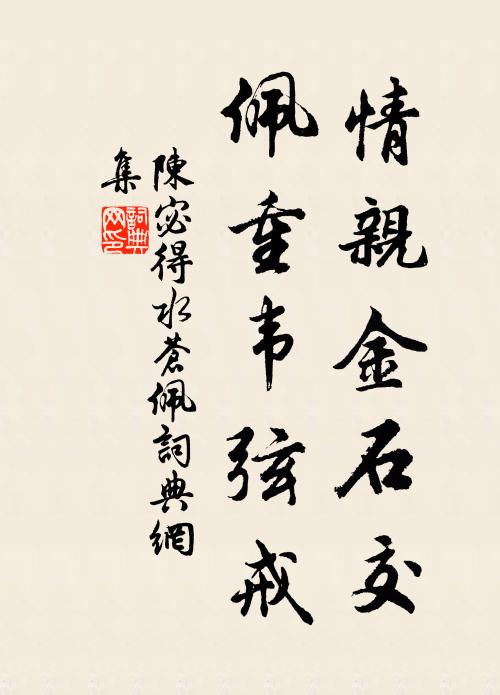 情親金石交
佩重韦弦戒
陳宓得水蒼佩詞典網
集
詞典
网印